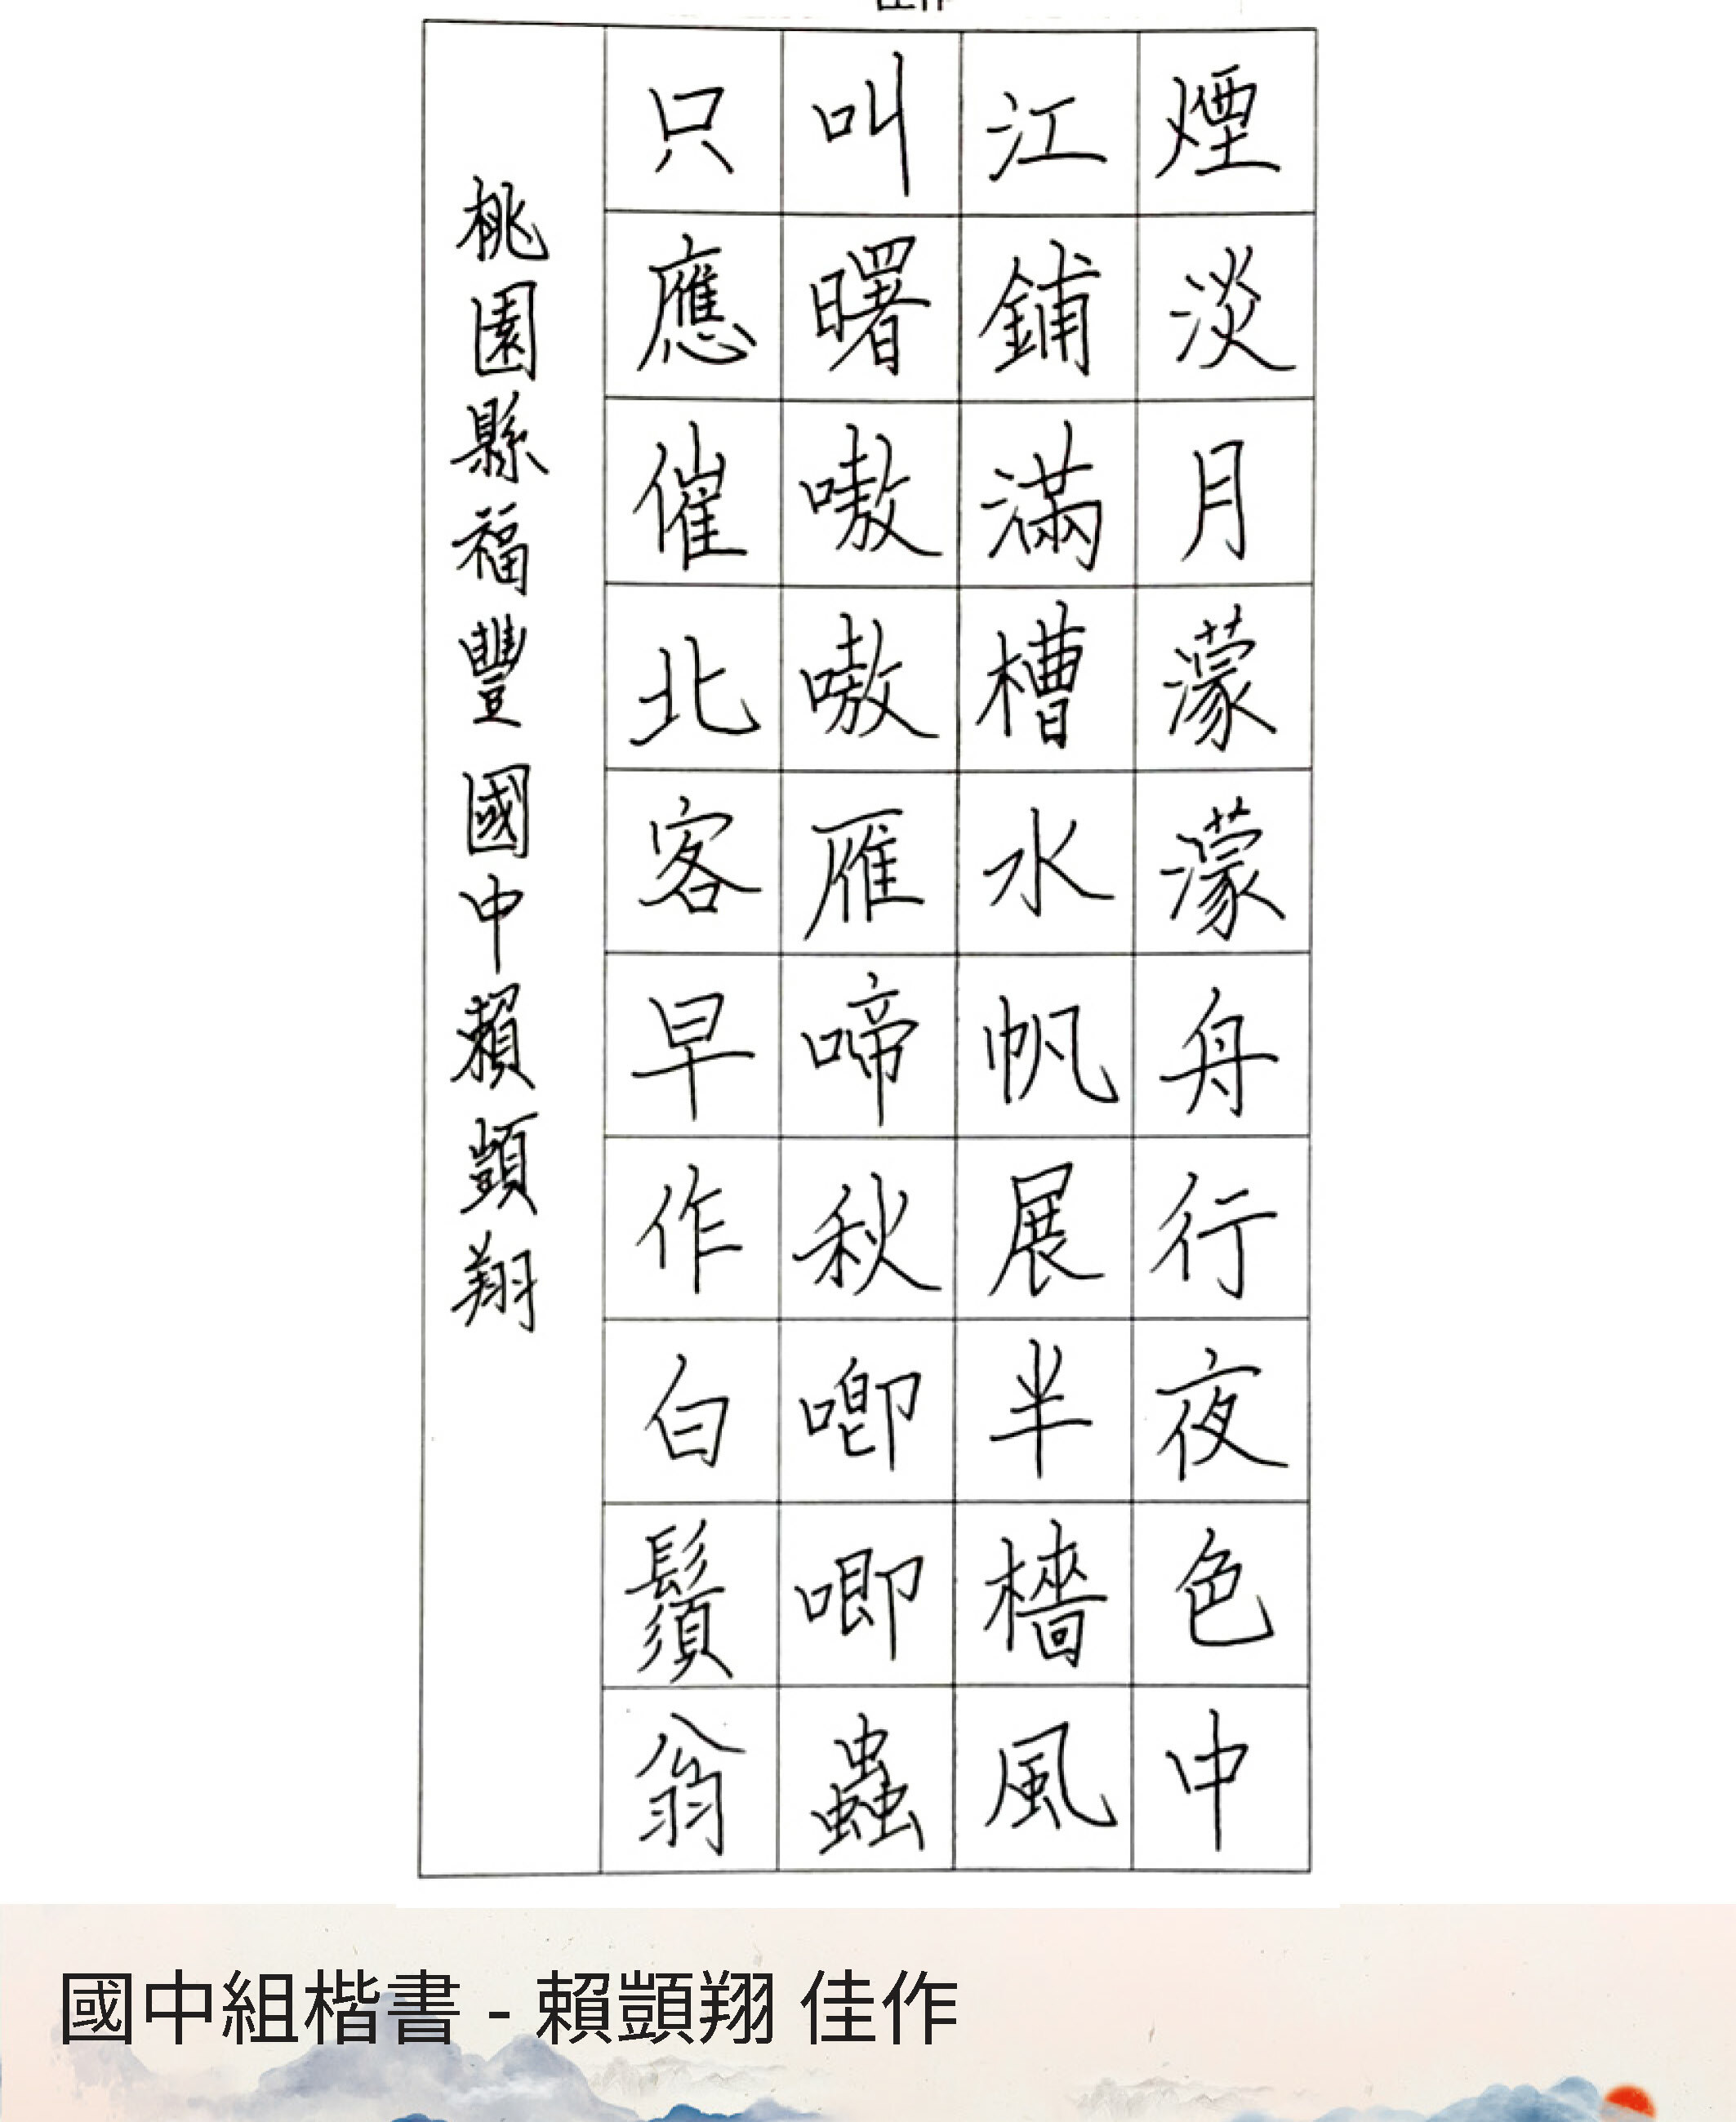 佳作
煙淡月濛濛舟行夜色中
江鋪滿槽水帆展半檣風
叫曙嗷嗷雁啼秋唧唧蟲
只應催北客早作白鬚翁
桃園縣福豐國中賴顗翔
國中組楷書 - 賴顗翔 佳作